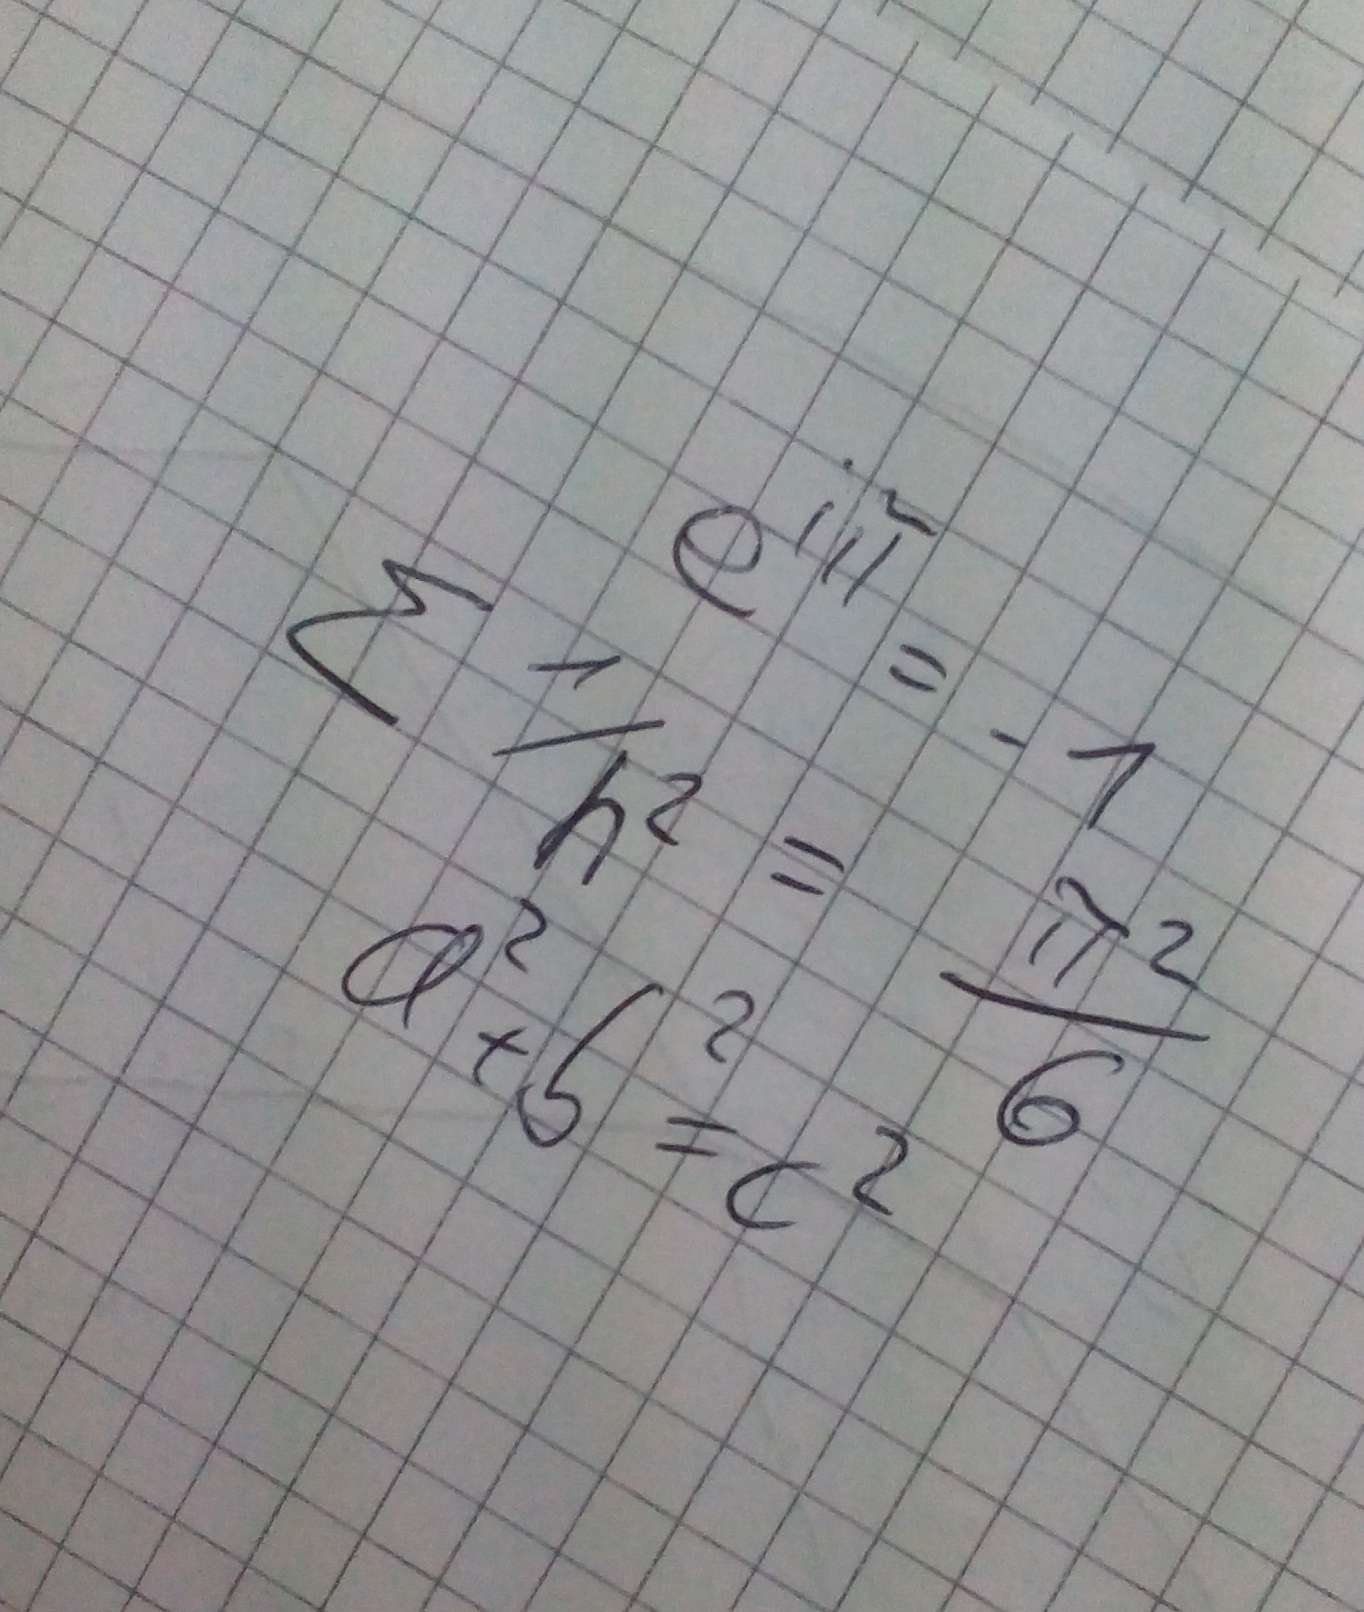 e^{iπ} = -1
∑ 1/n² = π²/6
a² + b² = c²